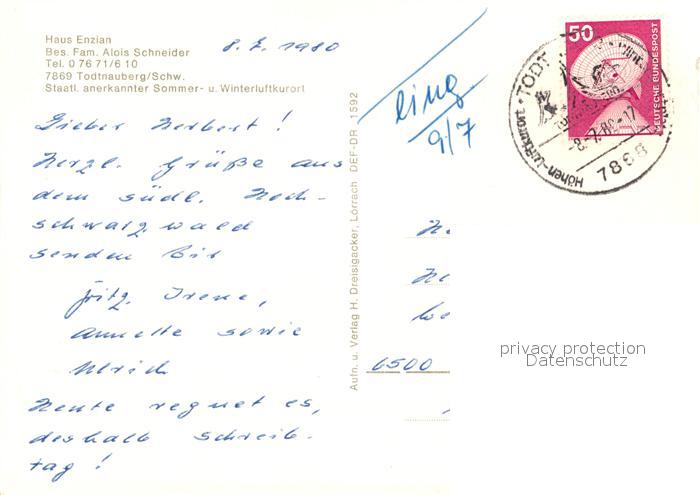 Haus Enzian
Bes. Fam. Alois Schneider
Tel. 0 76 71/6 10
7869 Todtnauberg/Schw.
Staatl. anerkannter Sommer- u. Winterluftkurort
8.7. 1980
Lieber Herbert!
Herzl. Grüße aus
dem südl. Hoch-
schwarzwald
senden Dir
Fritz, Irene,
Annette sowie
Ulrich
Heute regnet es,
deshalb Schreib-
tag!
Aufn. u. Verlag H. Dreisigacker, Lörrach DEF-DR 1592
eing
9/7
50
DEUTSCHE BUNDESPOST
TODT
Höhen-Luftkurort
-8.-7.80-17
7868
6500
privacy protection
Datenschutz